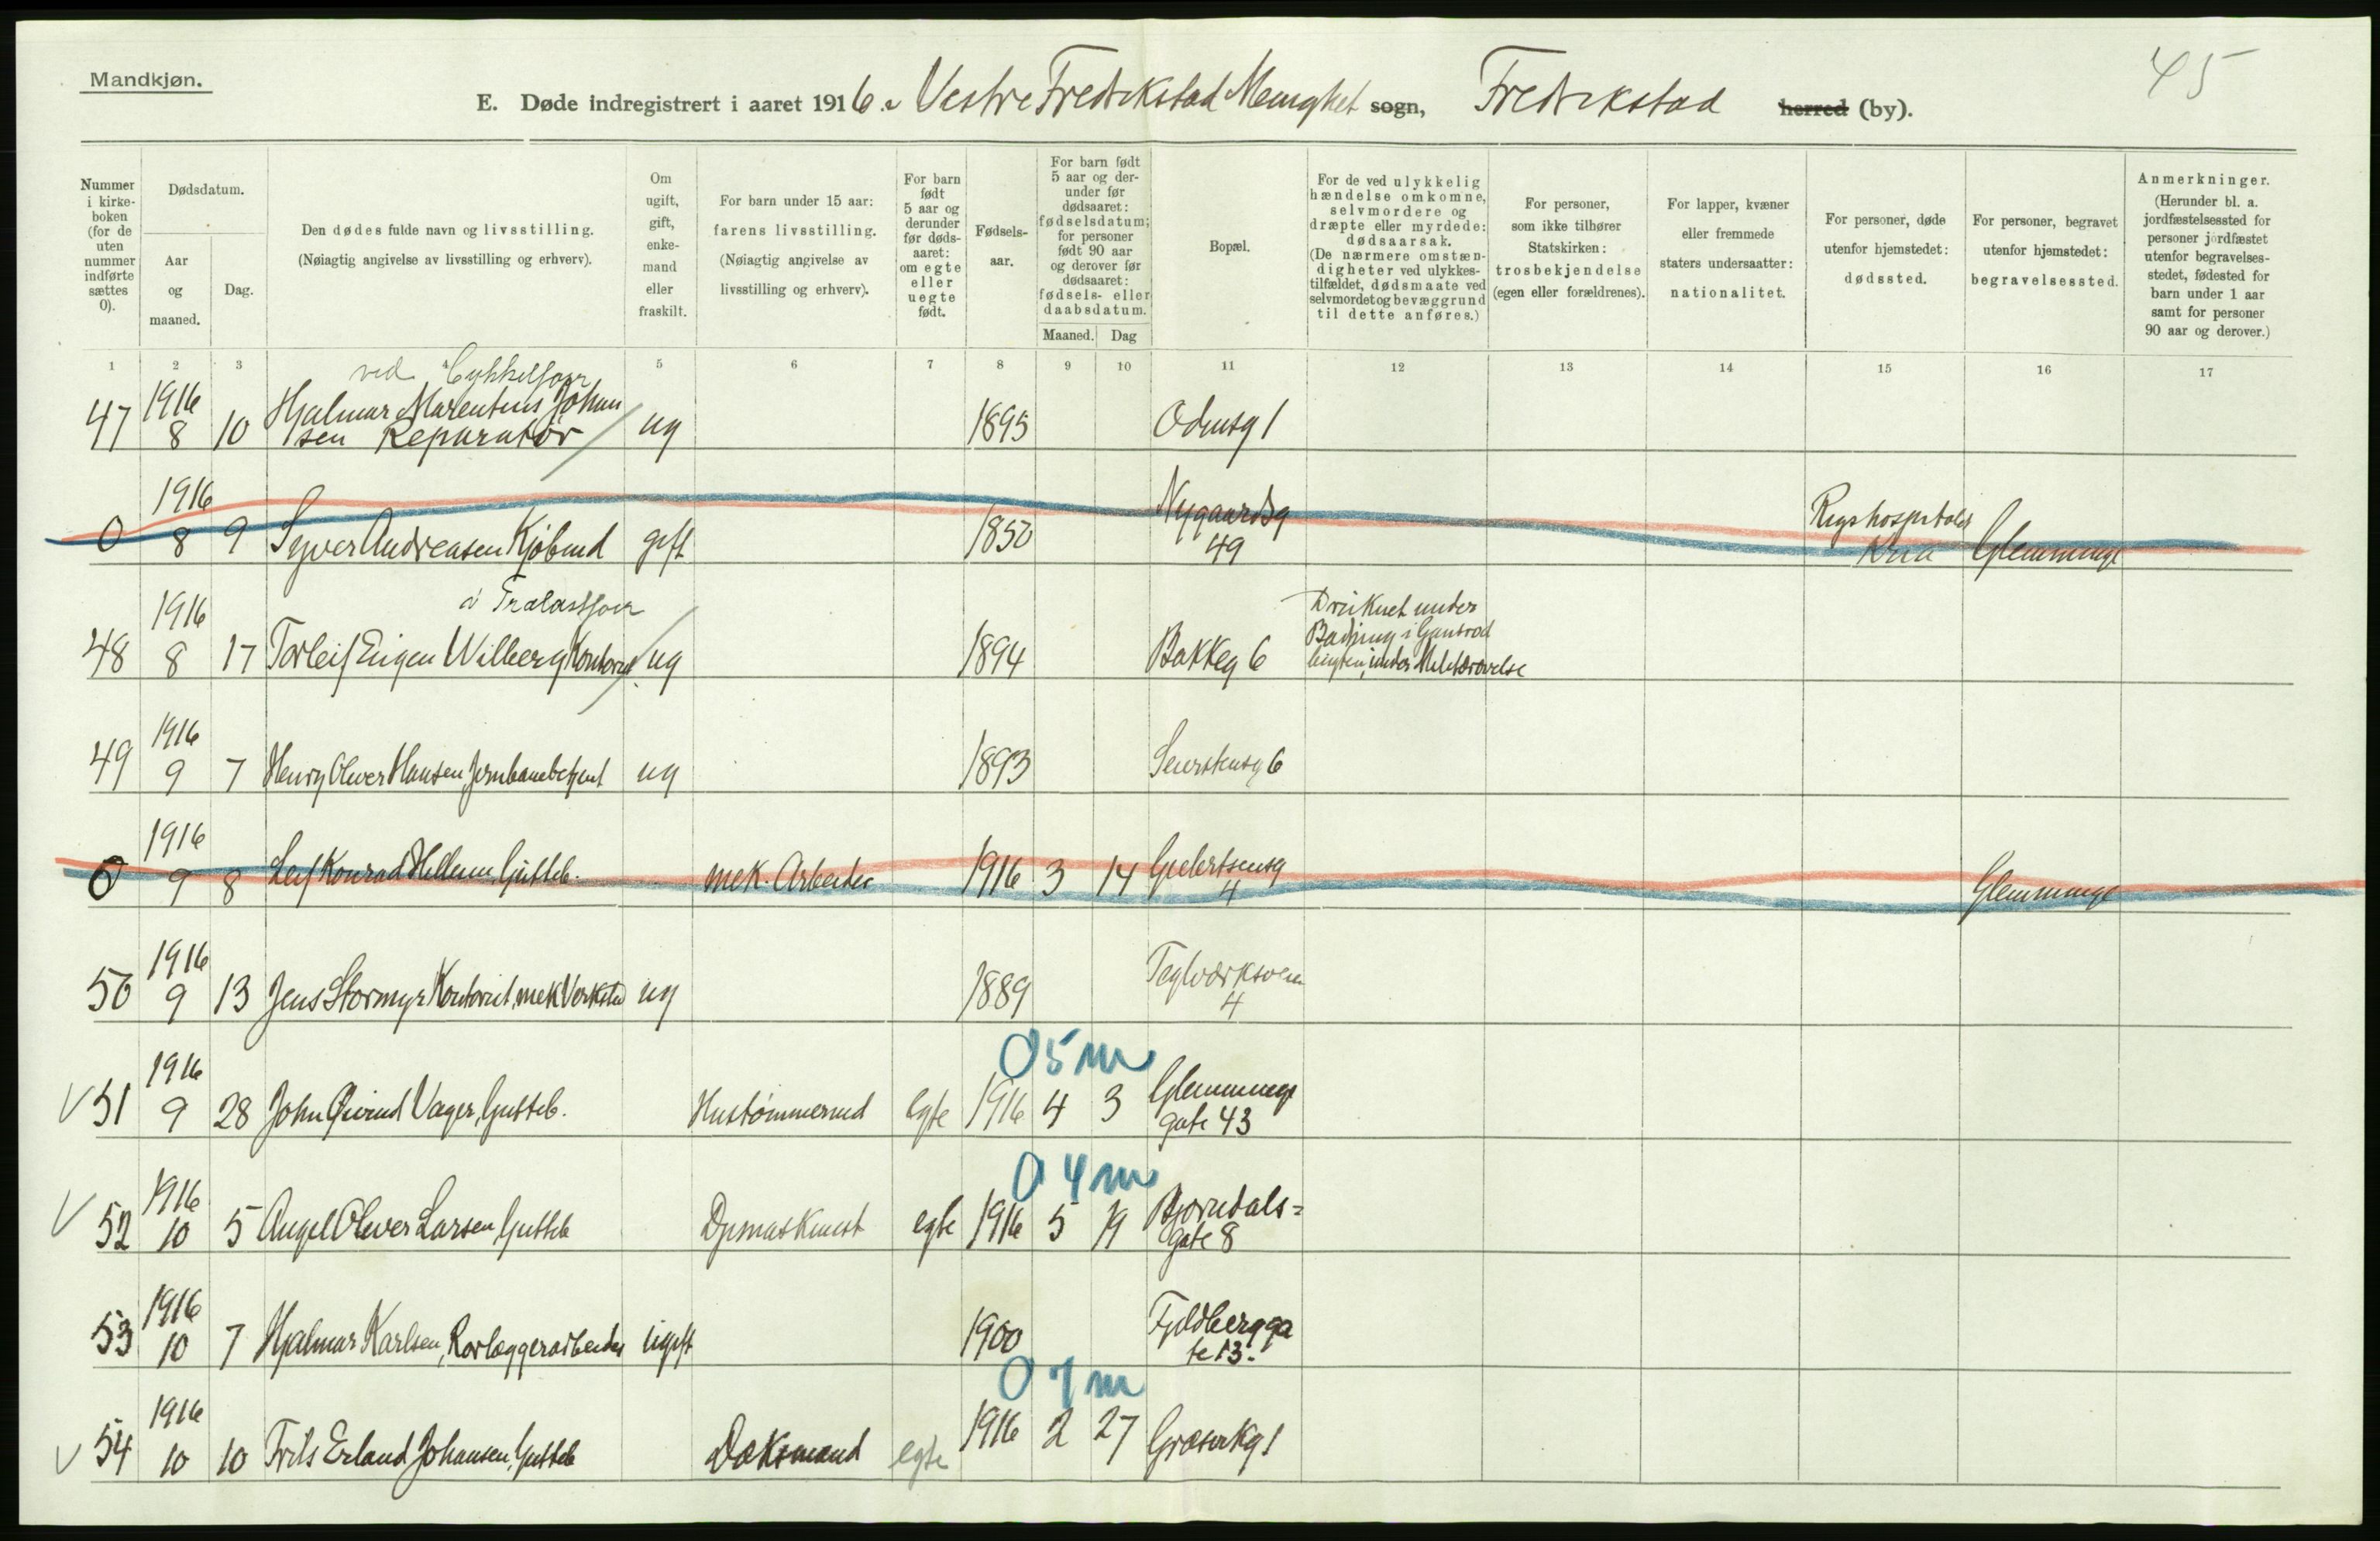 45
Mandkjøn.
E. Døde indregistrert i aaret 1916 i Vestre Fredrikstad Menighet sogn, Fredrikstad herred (by).
Nummer i kirke-boken (for de uten nummer indførte sættes 0).
Dødsdatum.
Aar og maaned.
Dag.
Den dødes fulde navn og livsstilling.
(Nøiagtig angivelse av livsstilling og erhverv).
Om ugift, gift, enke-mand eller fraskilt.
For barn under 15 aar: farens livsstilling. (Nøiagtig angivelse av livsstilling og erhverv).
For barn født 5 aar og derunder før døds-aaret: om egte eller uegte født.
Fødsels-aar.
For barn født 5 aar og der-under før dødsaaret: fødselsdatum; for personer født 90 aar og derover før dødsaaret: fødsels- eller daabsdatum.
Maaned. Dag
Bopæl.
For de ved ulykkelig hændelse omkomne, selvmordere og dræpte eller myrdede: dødsaarsak. (De nærmere omstæn-digheter ved ulykkes-tilfældet, dødsmaate ved selvmordet og bevæggrund til dette anføres.)
For personer, som ikke tilhører Statskirken: trosbekjendelse (egen eller forældrenes).
For lapper, kvæner eller fremmede staters undersaatter: nationalitet.
For personer, døde utenfor hjemstedet: dødssted.
For personer, begravet utenfor hjemstedet: begravelsessted.
Anmerkninger. (Herunder bl. a. jordfæstelsessted for personer jordfæstet utenfor begravelses-stedet, fødested for barn under 1 aar samt for personer 90 aar og derover.)
1 2 3 5 6 7 8 9 10 11 12 13 14 15 16 17
ved
47 1916 8 10 Hjalmar Marentius Johan
sen Reparatør ug 1895 Odinsg 1
0 1916 8 9 Syver Andreasen Kjøbmd gift 1850 Nygaardsg 49 Rigshospitalet Kria Glemminge
i Trælastforr
48 1916 8 17 Torleif Eugen Wilberg Kontorist ug 1894 Bakkeg 6 Druknet under
Badning i
under Militærøvelse
49 1916 9 7 Henry Oliver Hansen, Jernbanebetjent ug 1893 Seierstensg 6
0 1916 9 8 Leif Konrad Hellum, Gutteb. mek. Arbeider 1916 3 14 Gjelertsensg 4 Glemminge
50 1916 9 13 Jens Stormyr Kontorist, mek Verksted ug 1889 Teglværksveien 4
0 5 m
V 51 1916 9 28 John Øivind Vager, Gutteb. Hustømmermd egte 1916 4 3 Glemminge
gate 43
0 4 m
V 52 1916 10 5 Angel Oliver Larsen, Gutteb Dpmaskinist egte 1916 5 19 Bjørndals=
gate 8
53 1916 10 7 Hjalmar Karlsen, Rørlæggerarbeider ugift 1900 Fjeldbergga
te 13.
0 7 m
V 54 1916 10 10 Frits Erland Johansen, Gutteb Dæksmand egte 1916 2 27 Græsvikg 1